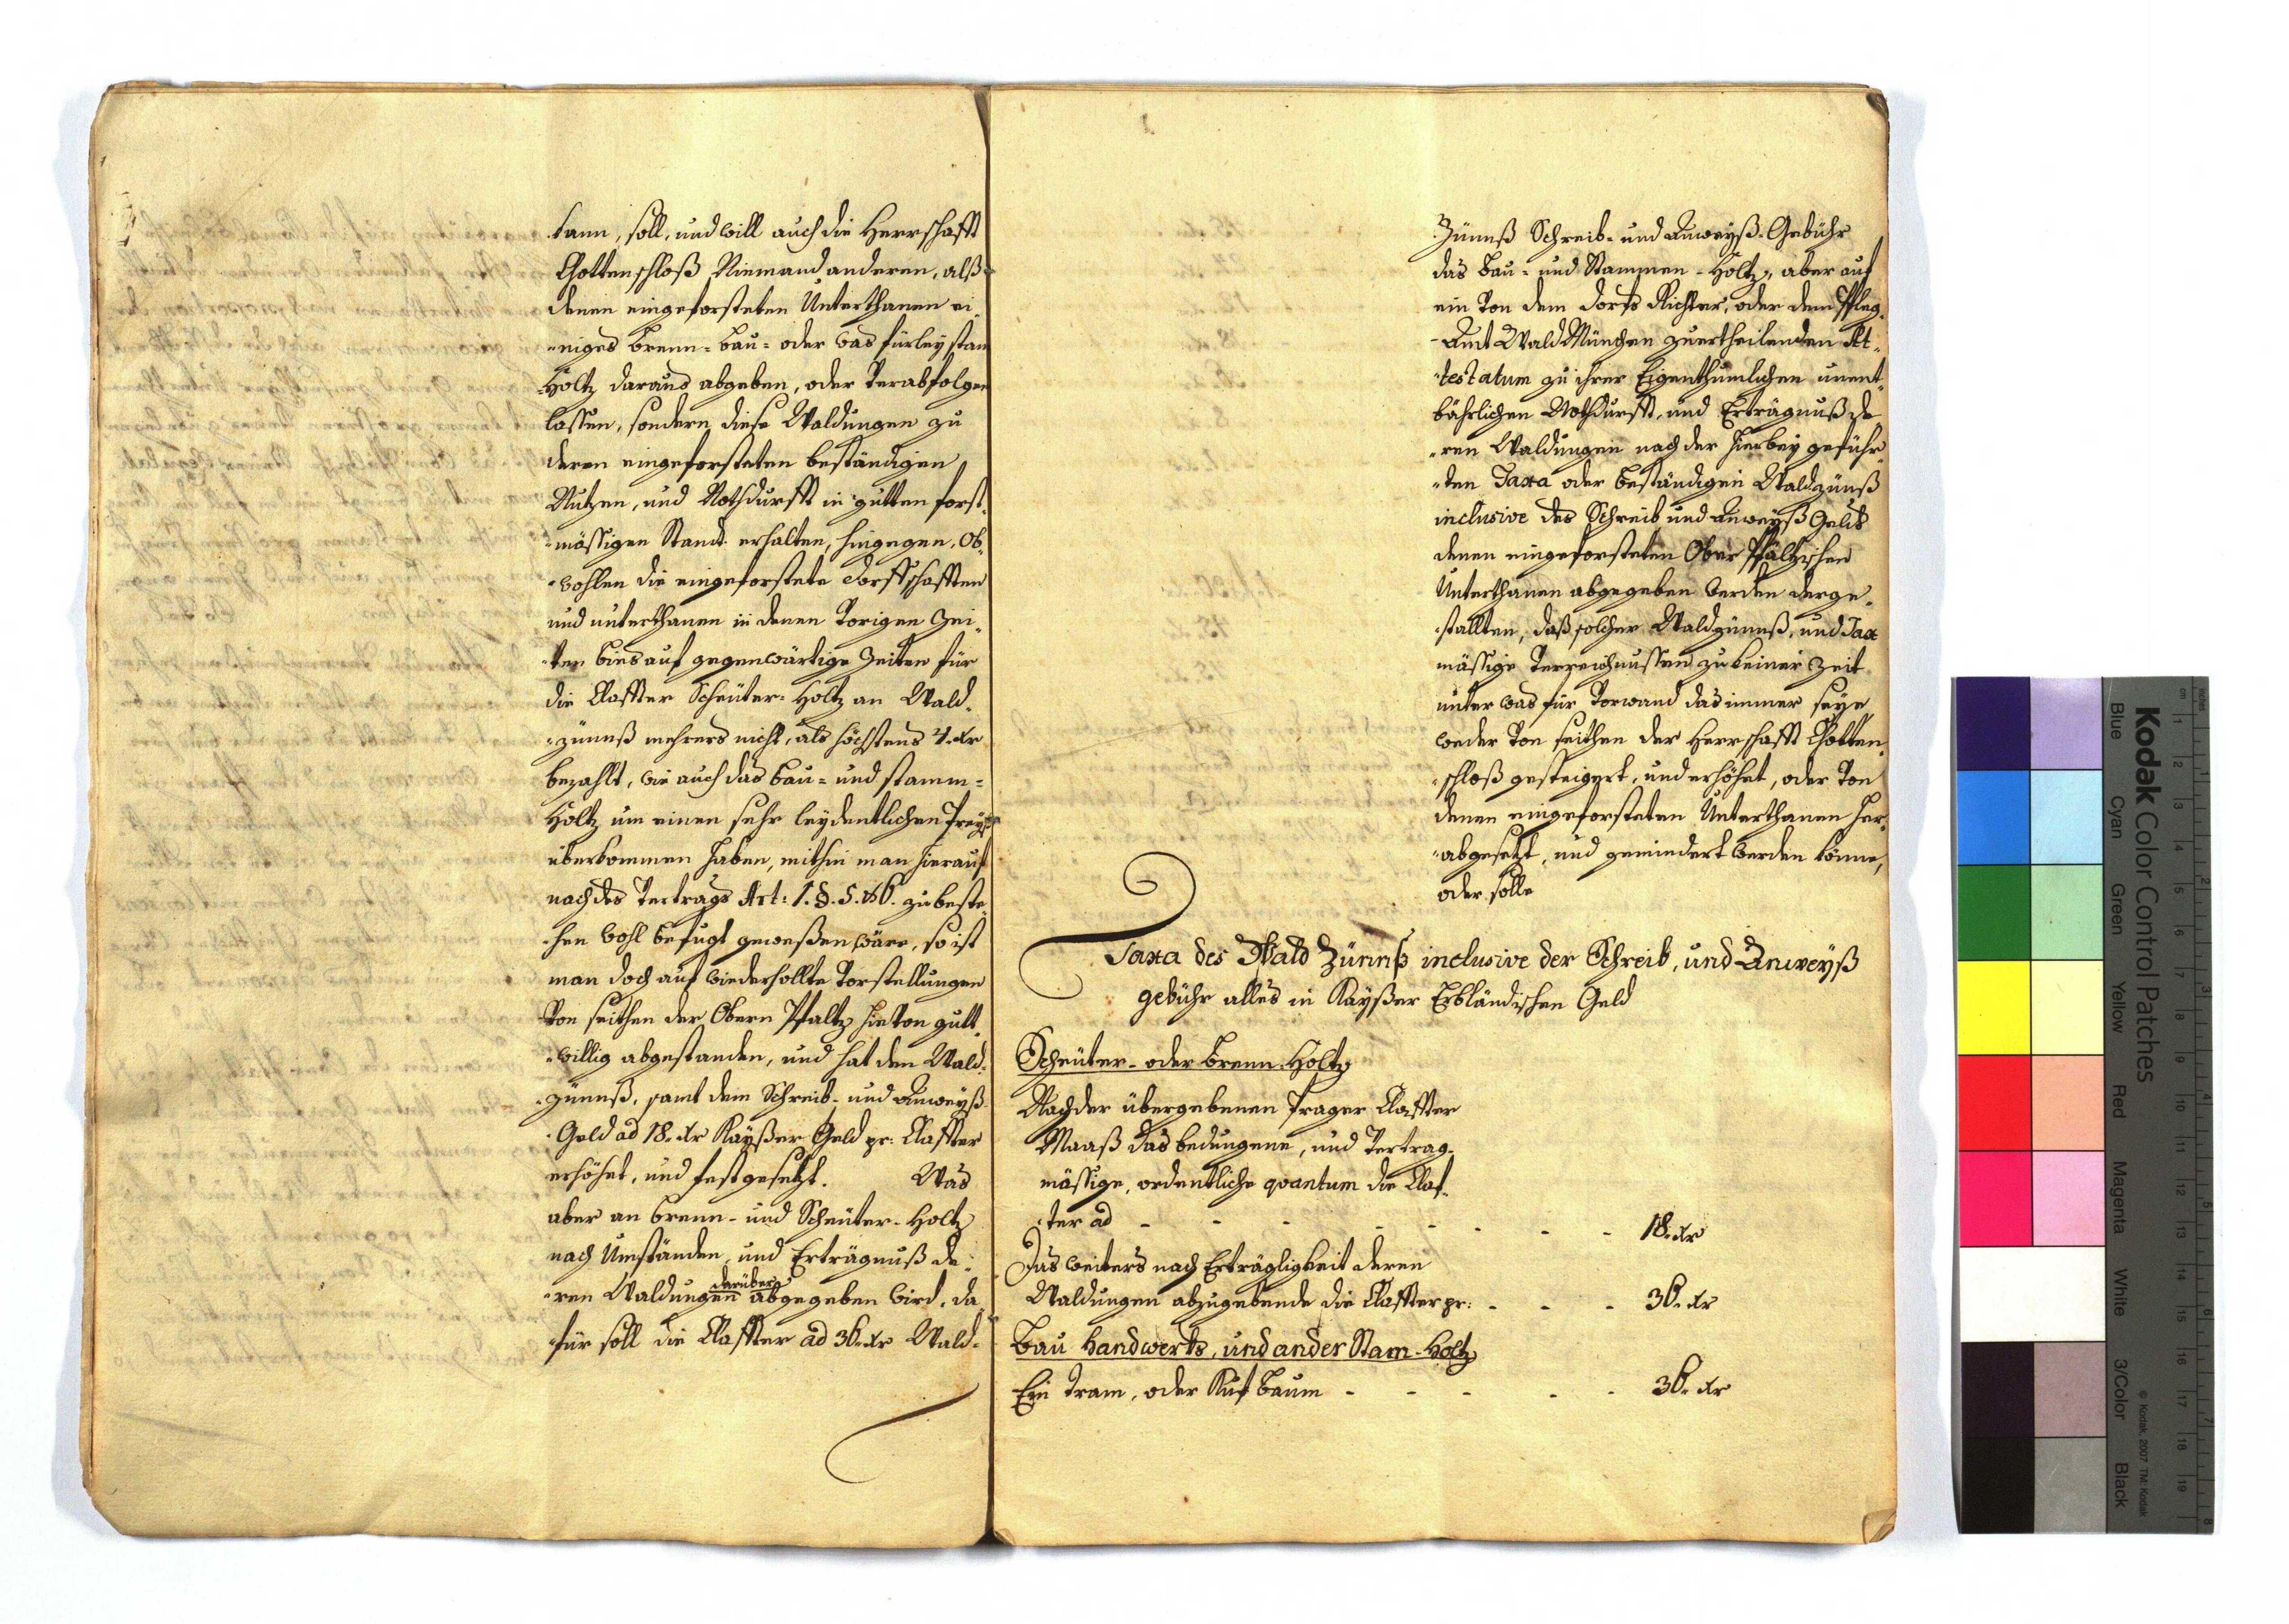 kann, soll, und will auch die Herrschafft
Chottenschloß Niemand anderen, alß
denen eingeforsteten Unterthanen ei„
„niges brenn- bau- oder was fürley stam
Holtz daraus abgeben, oder verabfolgen
lassen, sondern diese Waldungen zu
deren eingeforsteten beständigen
Nutzen, und Nothdurfft in gutten forst„
„mässigen Standt erhalten, hingegen, Ob„
„wohlen die eingeforstete dorffschafften
und unterthanen in denen vorigen Zei„
„ten bies auf gegenwärtige Zeiten für
die Claffter Scheüter-Holtz an Wald„
„zünnß mehrers nicht, als höchstens 4. Xr
bezahlt, wie auch das bau- und stamm-
Holtz um einen sehr leydentlichen Preyß
überkommen haben, mithin man hierauf
nach des Vertrags Art: 1. §. 5. & 6. zu beste„
„hen wohl befugt geweßen wäre, so ist
man doch auf wiederhollte Vorstellungen
von seithen der Obern Pfaltz hievon gutt„
„willig abgestanden, und hat den Wald„
„zünnß, samt dem Schreib- und Anweyß-
Geld ad 18. Xr Kayßer Geld pr: Claffter
erhöhet, und festgesetzt. Was
aber an brenn- und Scheüter-Holtz
nach Umständen, und Erträgnuß de„
darüber
„ren Waldungen abgegeben wird, da„
„für soll die Claffter ad 36. Xr Wald-
Zünnß Schreib- und Anweyß-Gebühr
das bau- und Stammen-Holtz, aber auf
ein von dem dorfs Richter, oder dem Pfleg„
Amt WaldMünchen zuertheilenden At„
„testatum zu ihrer Eigenthumlichen unent„
bährlichen Nothdurfft, und Erträgnuß de
„ren Waldungen nach der hierbey geführ„
„ten Taxa oder beständigen Waldzünß
inclusive des Schreib und Anweyß Gelds
denen eingeforsteten Ober Pfältzischen
Unterthanen abgegeben werden derge„
„stallten, daß solcher Waldzünnß, und Tax
mässige Verreichnussen zu keiner Zeit
unter was für Vorwand das immer seye
weder von seithen der Herrschafft Chotten„
„schloß gesteigert, und erhöhet, oder von
denen eingeforsteten Unterthanen her„
„abgesetzt, und gemindert werden könne,
oder solle
Taxa des Wald Zünnß inclusive der Schreib, und Anweyß
gebühr alles in Kayßer Erbländischen Geld
Scheüter- oder brenn-Holtz
Nach der übergebenen Prager Claffter
Maaß das bedungene, und Vertrag„
mässige, ordentliche quantum die Claf„
„ter ad - - - - - - - - 18. Xr
das weiters nach Erträgligkeit deren
Waldungen abzugebende die Claffter pr: - - - 36. Xr
Bau Handwerks, und ander Stam-Holtz
Ein Tram, oder Ruf baum - - - - - 36. Xr
Kodak Color Control Patches
© Kodak, 2007 TM: Kodak
Blue Cyan Green Yellow Red Magenta White 3/Color Black
inches 1 2 3 4 5 6 7 8
cm 1 2 3 4 5 6 7 8 9 10 11 12 13 14 15 16 17 18 19